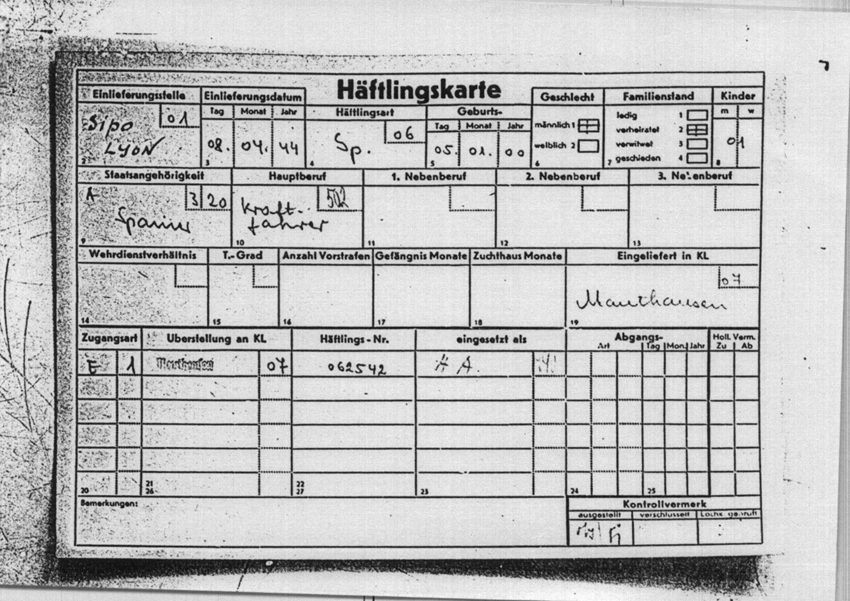 Häftlingskarte
Einlieferungsstelle 01
Sipo
LYON
2
Einlieferungsdatum
Tag Monat Jahr
08. 04. 44
3
Häftlingsart
06
Sp.
4
Geburts-
Tag Monat Jahr
05. 01. 00
5
Geschlecht
männlich 1
weiblich 2
6
Familienstand
ledig 1
verheiratet 2
verwitwet 3
geschieden 4
7
Kinder
m w
01
8
Staatsangehörigkeit
A 3 20
Spanier
9
Hauptberuf
502
Kraft-
fahrer
10
1. Nebenberuf
11
2. Nebenberuf
12
3. Nebenberuf
13
Wehrdienstverhältnis
14
T.-Grad
15
Anzahl Vorstrafen
16
Gefängnis Monate
17
Zuchthaus Monate
18
Eingeliefert in KL
07
Mauthausen
19
Zugangsart Überstellung an KL Häftlings-Nr. eingesetzt als Abgangs- Holl. Verm.
Art Tag Mon. Jahr Zu Ab
E 1 Mauthausen 07 062542 H A.
20 21 22 23 24 25
26 27
Bemerkungen:
Kontrollvermerk
ausgestellt verschlüsselt Lochk. geprüft